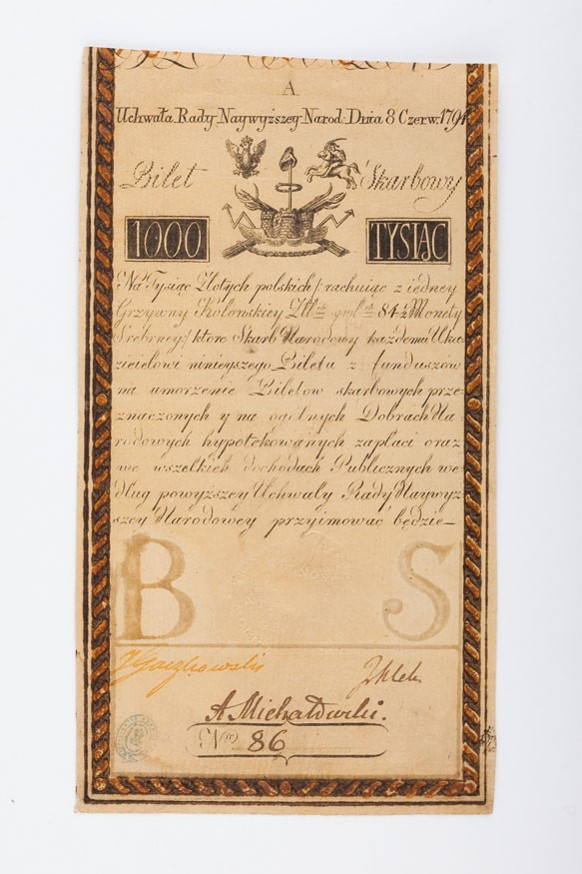 A
Uchwała Rady Naywyższey Narod: Dnia 8 Czerw: 1794
Bilet Skarbowy
1000 TYSIĄC
Na Tysiąc Złotych polskich /: rachuiąc z iedney
Grzywny Kolonskiey Ztt 84½ Monety
Srebrney :/ ktore Skarb Narodowy każdemu Uka-
zicielowi ninieyszego Biletu z funduszow
na umorzenie Biletow skarbowych prze-
znaczonych y na ogolnych Dobrach Na
rodowych hypotekowanych zapłaci oraz
we wszelkich dochodach Publicznych we
dług powyższey Uchwały Rady Naywyż
szey Narodowey przyimować będzie
B S
A Michałowski.
N(ro) 86